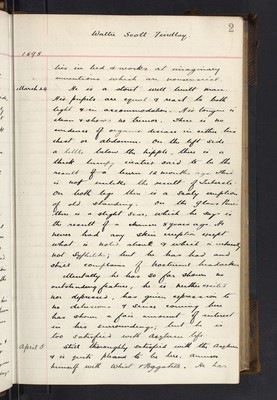 2
Walter Scott Findlay
1898.
lies in bed & works at imaginary
inventions which are nonsensical.
March 24 He is a stout well built man.
His pupils are equal & react to both
light & on accommodation. His tongue is
clean & shows no tremor. There is no
evidence of organic disease in either his
chest or abdomen. On the left side
a little below the nipple there is a
thick lumpy cicatrix said to be the
result of a burn 12 months ago. This
is not unlike the result of
On both legs there is a scaly eruption
of old standing. On the glans Penis
there is a slight scar, which he says is
the result of a chancre 8 years ago. He
never had any skin eruption except
what is noted above & which is
not Syphilitic; but he has had and
still complains of nocturnal headaches.
Mentally he has so far shown no
outstanding feature, he is neither excited
nor depressed, has given expression to
no delusions & since coming here
has shown a fair amount of interest
in his surroundings; but he is
too satisfied with Asylum life.
April 5 Still thoroughly satisfied with the Asylum
& is quite pleased to be here. Amuses
himself with Whist & Bagatelle. He has